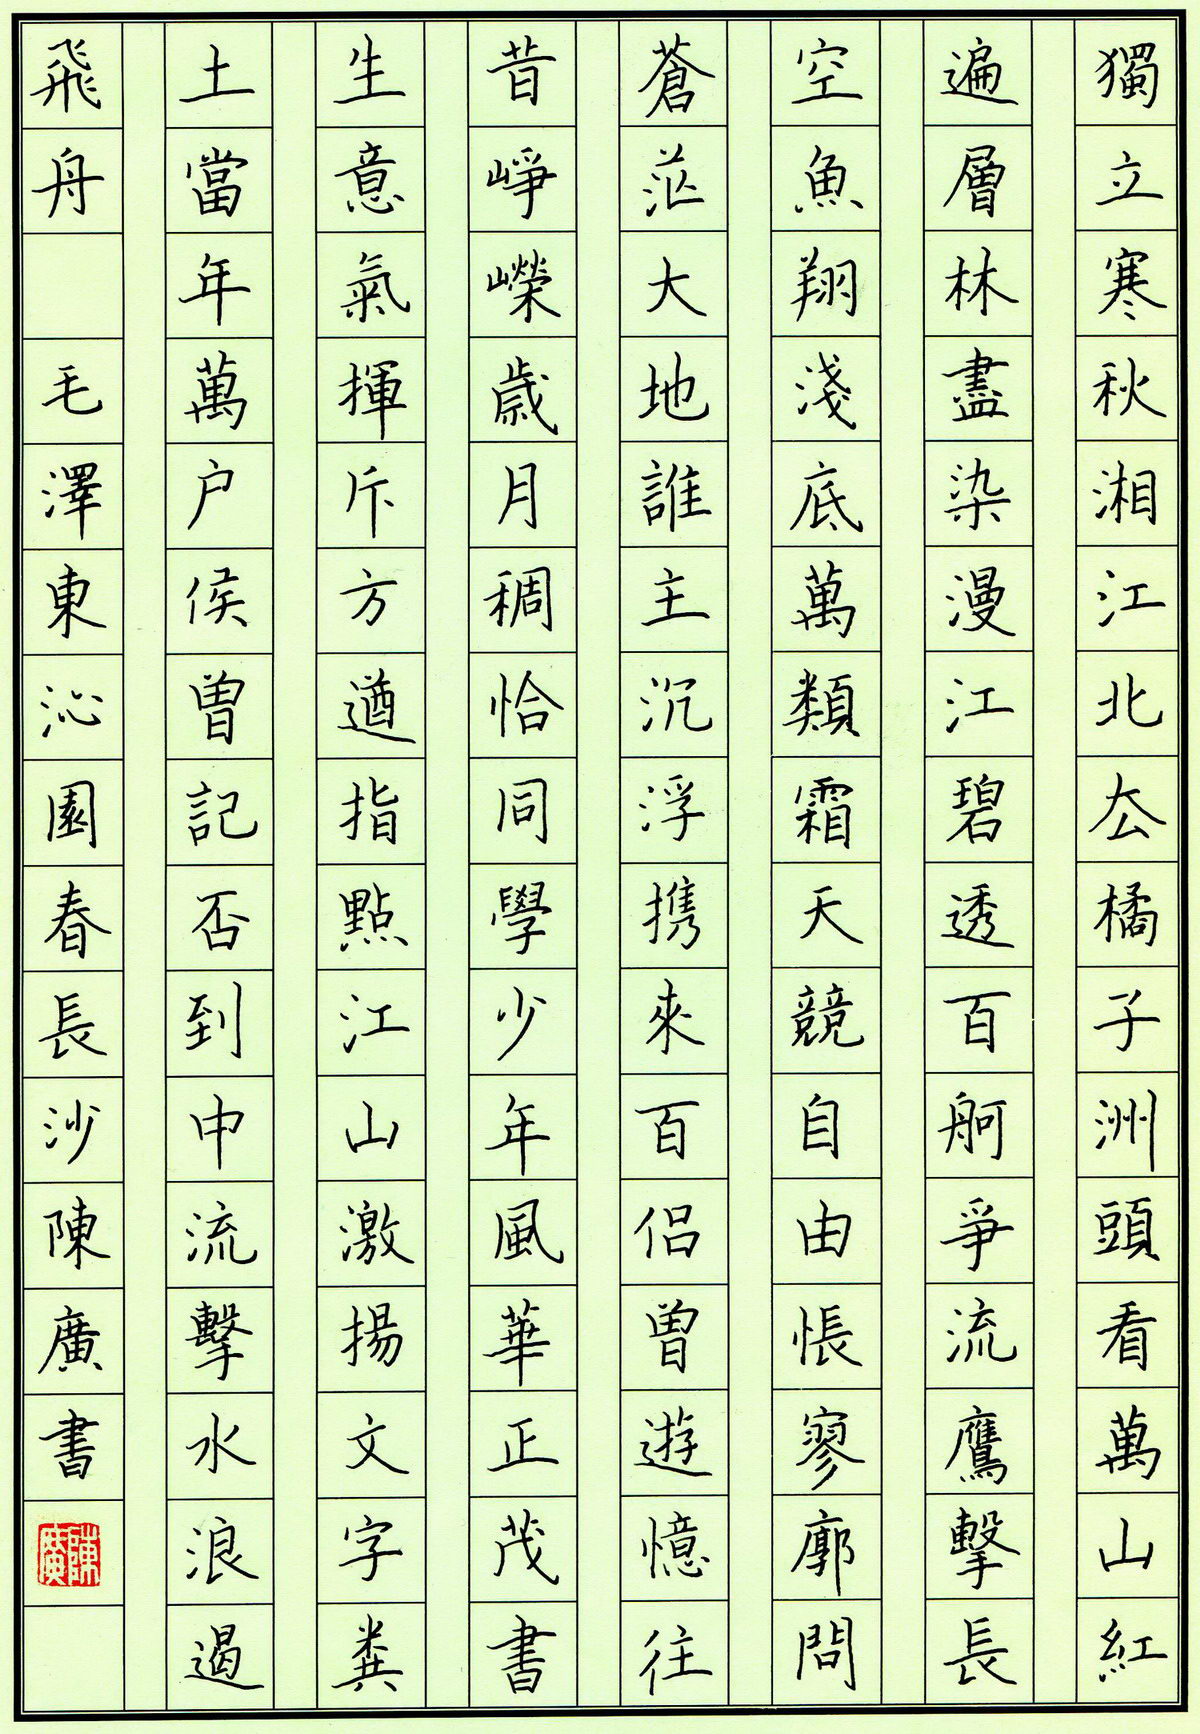 獨立寒秋湘江北厺橘子洲頭看萬山紅
遍層林盡染漫江碧透百舸爭流鷹擊長
空魚翔淺底萬類霜天競自由悵寥廓問
蒼茫大地誰主沉浮携來百侣曾遊憶往
昔崢嶸歲月稠恰同學少年風華正茂書
生意氣揮斥方遒指點江山激揚文字糞
土當年萬户侯曾記否到中流擊水浪遏
飛舟 毛澤東沁園春長沙陳廣書
陳廣